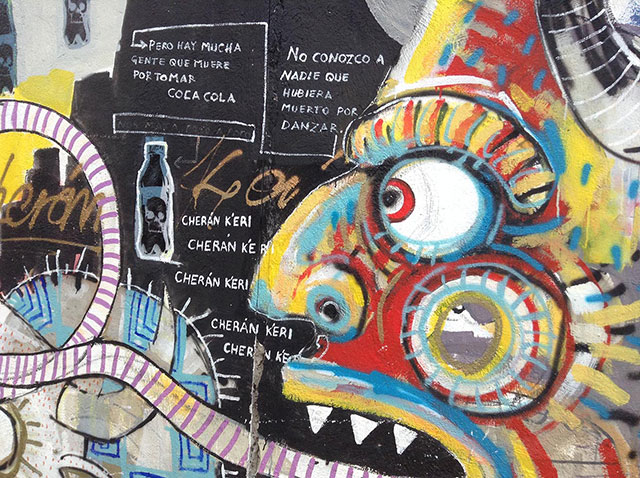 →PERO HAY MUCHA
GENTE QUE MUERE
POR TOMAR
COCA COLA
NO CONOZCO A
NADIE QUE
HUBIERA
MUERTO POR
DANZAR.
CHERÁN K'ERI
CHERAN K'E RI
CHERÁN K'ERI
CHERÁN K'ERI
CHERÁN K'E
cherán
Keri